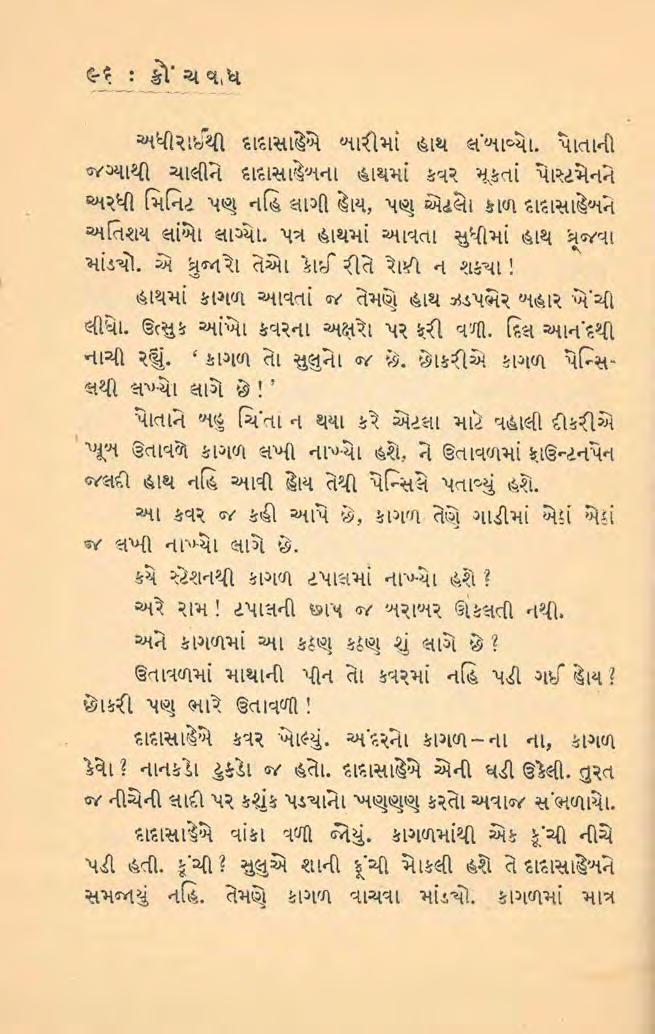 ૯૬ : ક્રૌંચવધ
અધીરાઈથી દાદાસાહેબે બારીમાં હાથ લંબાવ્યો. પોતાની
જગ્યાથી ચાલીને દાદાસાહેબના હાથમાં કવર મૂકતાં પોસ્ટમેનને
અરધી મિનિટ પણ નહિ લાગી હોય, પણ એટલો કાળ દાદાસાહેબને
અતિશય લાંબો લાગ્યો. પત્ર હાથમાં આવતા સુધીમાં હાથ ધ્રૂજવા
માંડ્યો. એ ધ્રુજારો તેઓ કોઈ રીતે રોકી ન શક્યા!
હાથમાં કાગળ આવતાં જ તેમણે હાથ ઝડપભેર બહાર ખેંચી
લીધો. ઉત્સુક આંખો કવરના અક્ષરો પર ફરી વળી. દિલ આનંદથી
નાચી રહ્યું. ‘કાગળ તો સુલુનો જ છે. છોકરીએ કાગળ પેન્સિ-
લથી લખ્યો લાગે છે!’
પોતાને બહુ ચિંતા ન થયા કરે એટલા માટે વહાલી દીકરીએ
ખૂબ ઉતાવળે કાગળ લખી નાખ્યો હશે, ને ઉતાવળમાં ફાઉન્ટનપેન
જલદી હાથ નહિ આવી હોય તેથી પેન્સિલે પતાવ્યું હશે.
આ કવર જ કહી આપે છે, કાગળ તેણે ગાડીમાં બેઠાં બેઠાં
જ લખી નાખ્યો લાગે છે.
કયે સ્ટેશનથી કાગળ ટપાલમાં નાખ્યો હશે?
અરે રામ! ટપાલની છાપ જ બરાબર ઊકલતી નથી.
અને કાગળમાં આ કઠણ કઠણ શું લાગે છે?
ઉતાવળમાં માથાની પીન તો કવરમાં નહિ પડી ગઈ હોય?
છોકરી પણ ભારે ઉતાવળી!
દાદાસાહેબે કવર ખોલ્યું. અંદરનો કાગળ–ના ના, કાગળ
કેવો? નાનકડો ટુકડો જ હતો. દાદાસાહેબે એની ઘડી ઉકેલી. તુરત
જ નીચેની લાદી પર કશુંક પડ્યાનો ખણણણ કરતો અવાજ સંભળાયો.
દાદાસાહેબે વાંકા વળી જોયું. કાગળમાંથી એક કૂંચી નીચે
પડી હતી. કૂંચી? સુલુએ શાની કૂંચી મોકલી હશે તે દાદાસાહેબને
સમજાયું નહિ. તેમણે કાગળ વાચવા માંડ્યો. કાગળમાં માત્ર